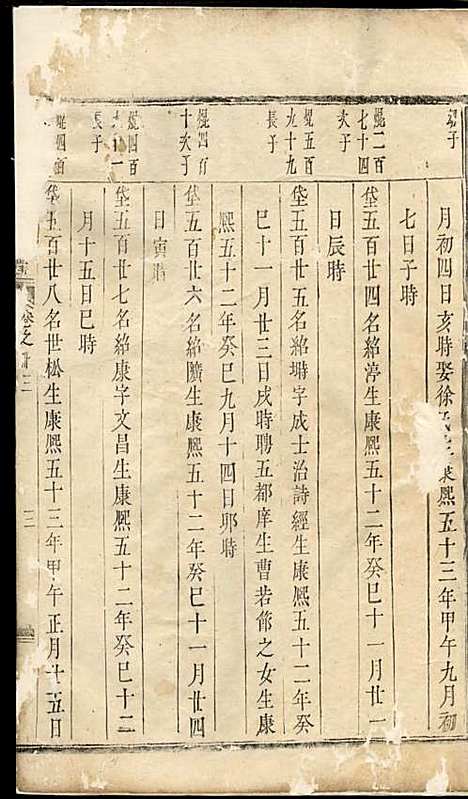 幼子
月初四日亥時娶徐氏生康熙五十三年甲午九月初
七日子時
焜二百七十四次子
垡五百廿四名紹渟生康熙五十二年癸巳十一月廿一
日辰時
焜五百九十九長子
垡五百廿五名紹塒字成士治詩經生康熙五十二年癸
巳十一月廿三日戌時聘五都庠生曹若節之女生康
熙五十二年癸巳九月十四日卯時
焜四百十次子
垡五百廿六名紹隮生康熙五十二年癸巳十一月廿四
日寅時
焜四百一長子
垡五百廿七名紹康字文昌生康熙五十二年癸巳十二
月十五日巳時
焜四百
垡五百廿八名世松生康熙五十三年甲午正月十五日
卷之十三
三